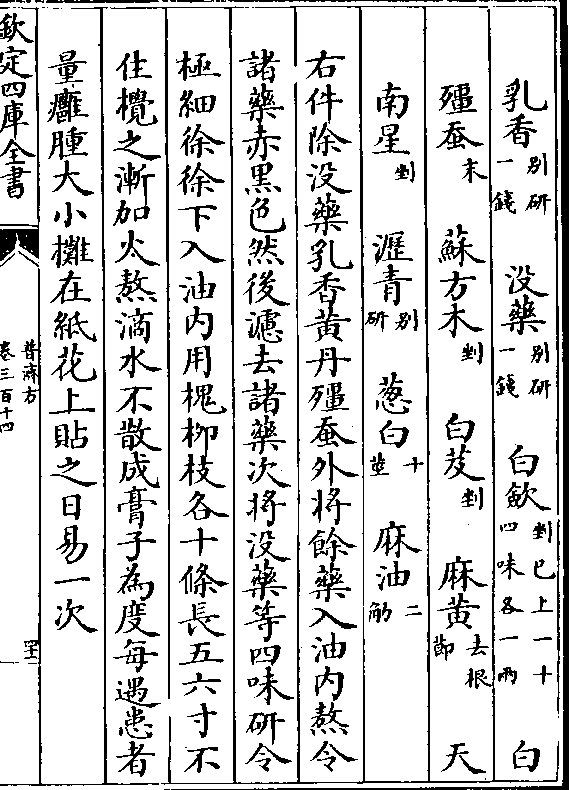 乳香別研一錢　没藥別研一錢　白歛剉已上一十四味各一兩　白
殭蚕末　蘇方木剉　白芨剉　麻黄去根節　天
南星剉　瀝青別研　葱白十莖　麻油二觔
右件除没藥乳香黄丹殭蚕外將餘藥入油内熬令
諸藥赤黒色然後濾去諸藥次將没藥等四味研令
極細徐徐下入油内用槐栁枝各十條長五六寸不
住攪之漸加火熬滴水不散成膏子為度每遇患者
量癰腫大小攤在紙花上貼之日易一次
欽定四庫全書
普濟方
卷三百十四